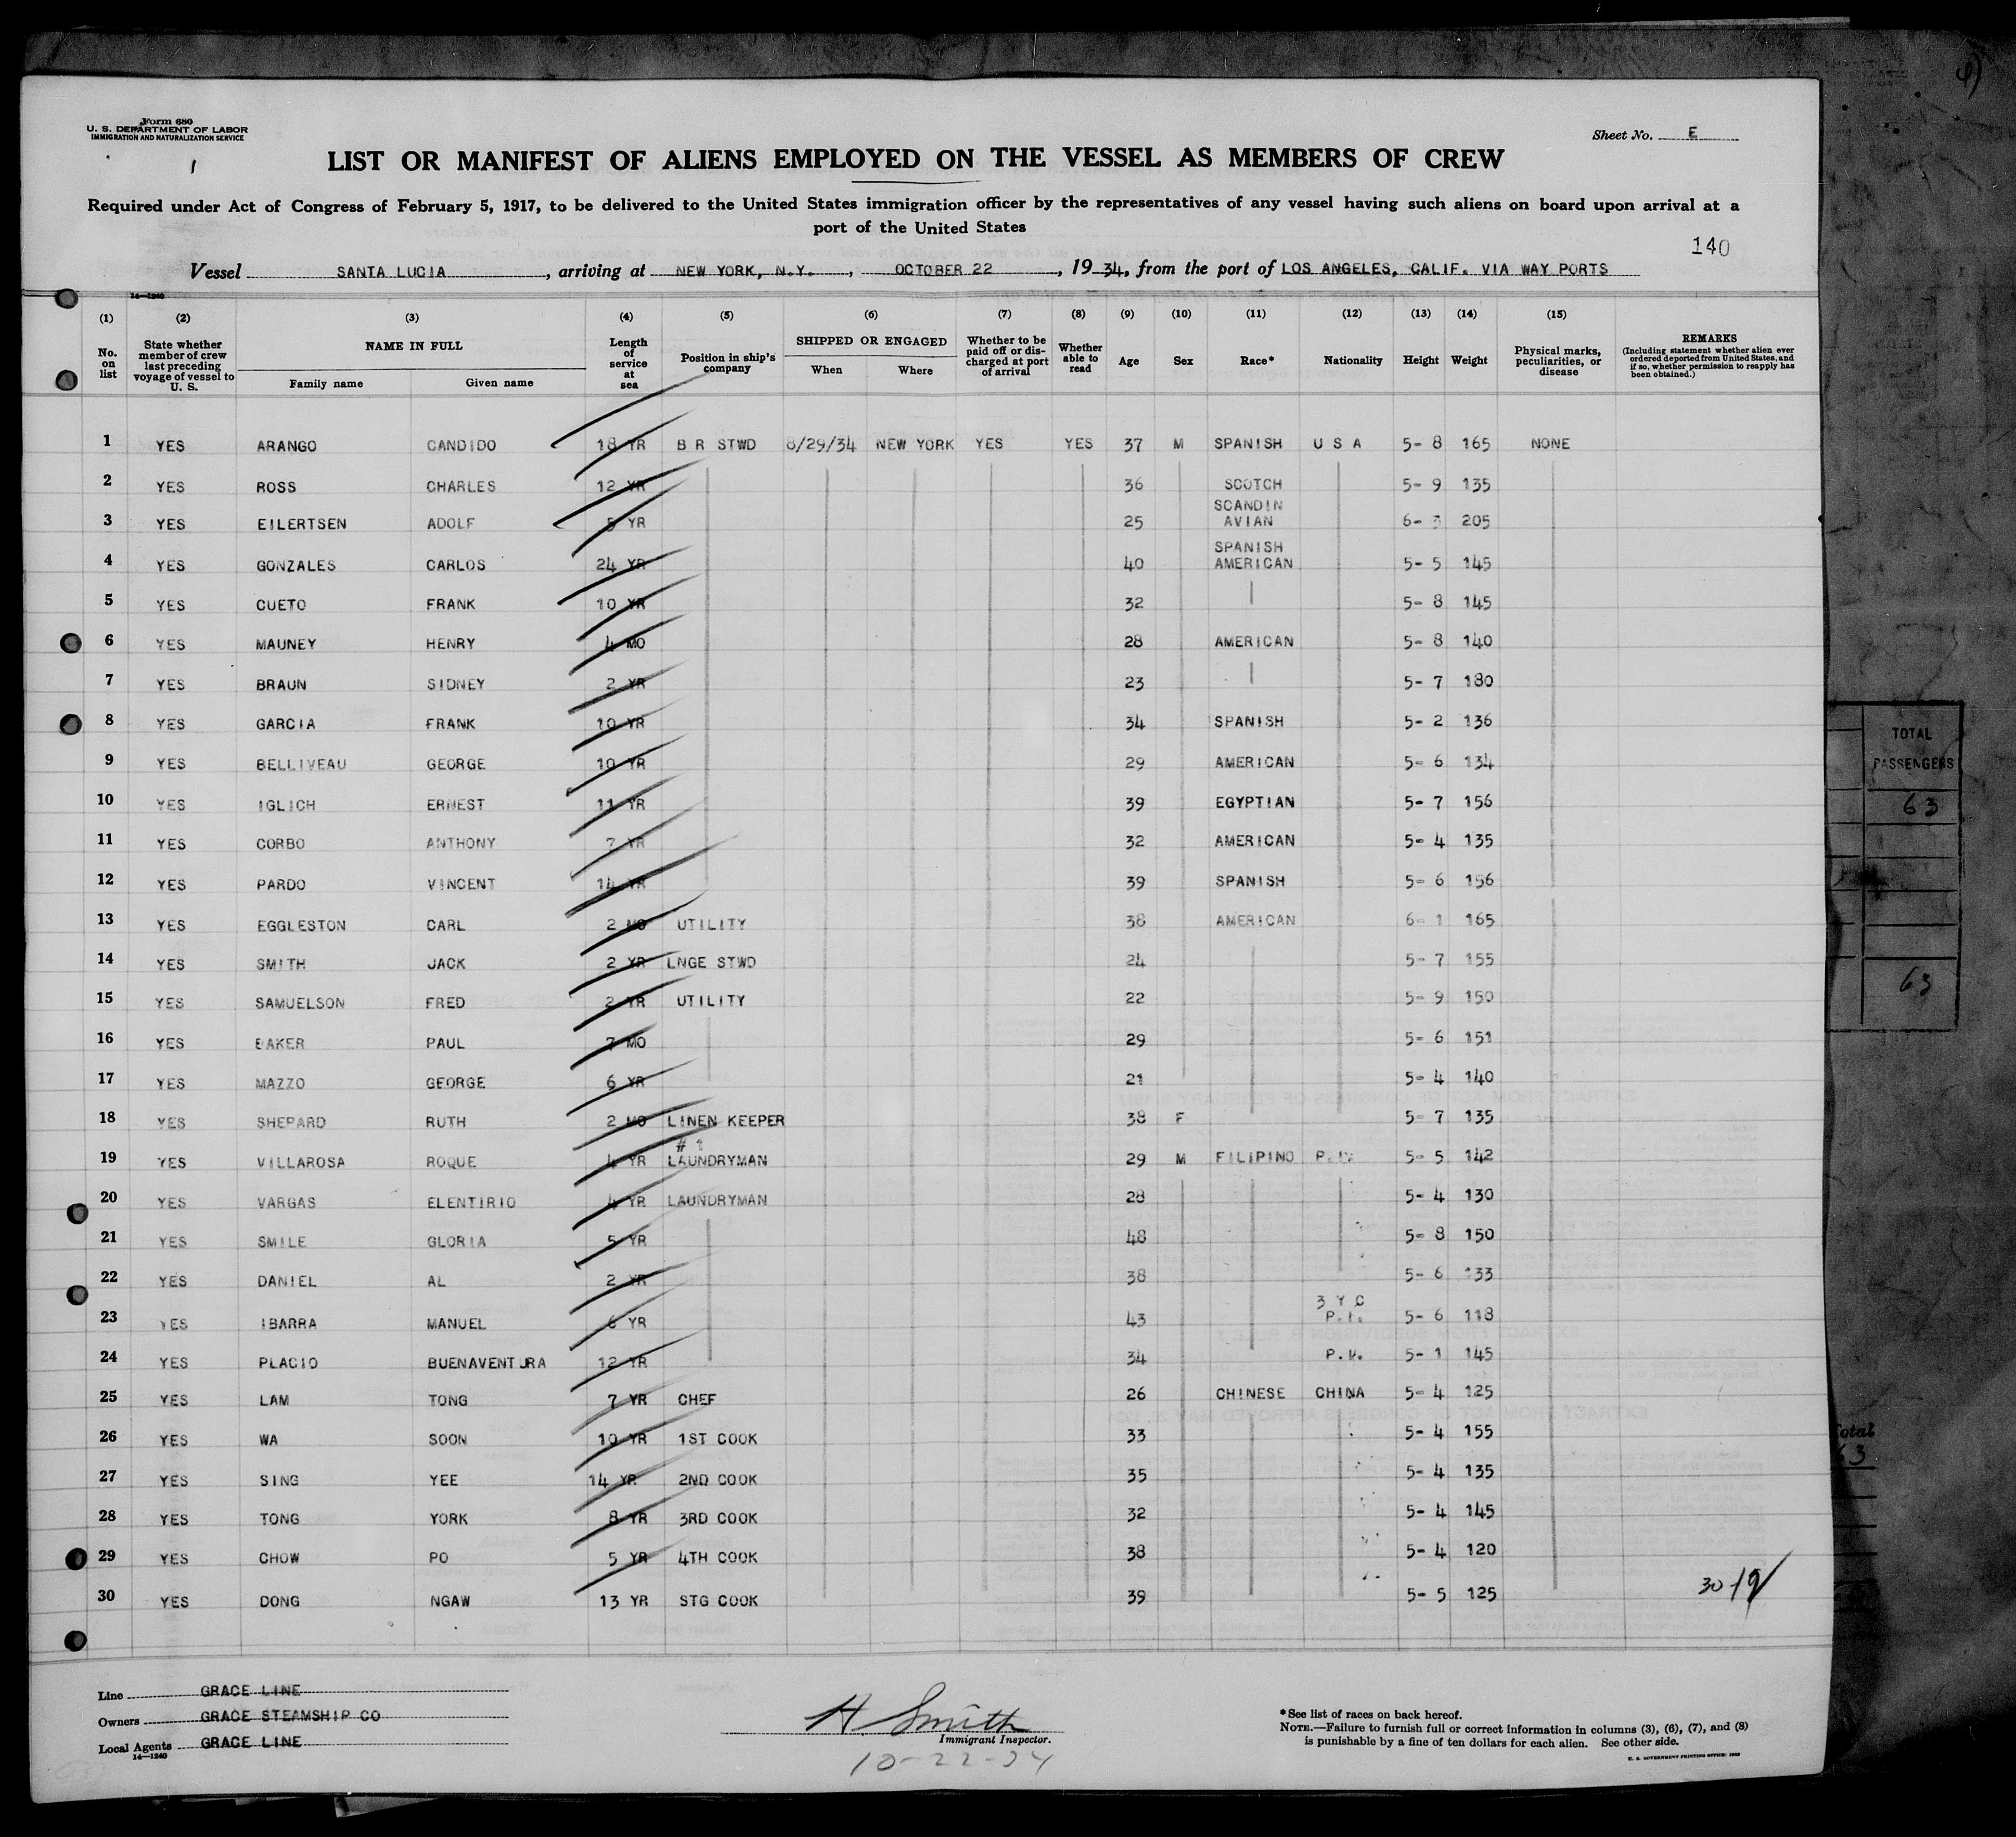 Form 680
U. S. DEPARTMENT OF LABOR
IMMIGRATION AND NATURALIZATION SERVICE
1
Sheet No. E
LIST OR MANIFEST OF ALIENS EMPLOYED ON THE VESSEL AS MEMBERS OF CREW
Required under Act of Congress of February 5, 1917, to be delivered to the United States immigration officer by the representatives of any vessel having such aliens on board upon arrival at a
port of the United States
140
Vessel SANTA LUCIA, arriving at NEW YORK, N.Y., OCTOBER 22, 1934, from the port of LOS ANGELES, CALIF. VIA WAY PORTS
14—1240
(1) (2) (3) (4) (5) (6) (7) (8) (9) (10) (11) (12) (13) (14) (15)
No. on list
State whether member of crew last preceding voyage of vessel to U. S.
NAME IN FULL
Family name Given name
Length of service at sea
Position in ship's company
SHIPPED OR ENGAGED
When Where
Whether to be paid off or discharged at port of arrival
Whether able to read
Age Sex Race* Nationality Height Weight
Physical marks, peculiarities, or disease
REMARKS
(Including statement whether alien ever ordered deported from United States, and if so, whether permission to reapply has been obtained.)
1 YES ARANGO CANDIDO 18 YR B R STWD 8/29/34 NEW YORK YES YES 37 M SPANISH U S A 5- 8 165 NONE
2 YES ROSS CHARLES 12 YR 36 SCOTCH 5- 9 135
3 YES EILERTSEN ADOLF 5 YR 25 SCANDIN AVIAN 6- 205
4 YES GONZALES CARLOS 24 YR 40 SPANISH AMERICAN 5- 5 145
5 YES CUETO FRANK 10 YR 32 5- 8 145
6 YES MAUNEY HENRY 4 MO 28 AMERICAN 5- 8 140
7 YES BRAUN SIDNEY 2 YR 23 5- 7 180
8 YES GARCIA FRANK 10 YR 34 SPANISH 5- 2 136
9 YES BELLIVEAU GEORGE 10 YR 29 AMERICAN 5- 6 134
10 YES IGLICH ERNEST 11 YR 39 EGYPTIAN 5- 7 156
11 YES CORBO ANTHONY 7 YR 32 AMERICAN 5- 4 135
12 YES PARDO VINCENT 14 YR 39 SPANISH 5- 6 156
13 YES EGGLESTON CARL 2 MO UTILITY 38 AMERICAN 6- 1 165
14 YES SMITH JACK 2 YR LNGE STWD 24 5- 7 155
15 YES SAMUELSON FRED 2 YR UTILITY 22 5- 9 150
16 YES BAKER PAUL 7 MO 29 5- 6 151
17 YES MAZZO GEORGE 6 YR 21 5- 4 140
18 YES SHEPARD RUTH 2 MO LINEN KEEPER 38 F 5- 7 135
19 YES VILLAROSA ROQUE 4 YR #1 LAUNDRYMAN 29 M FILIPINO P.I. 5- 5 142
20 YES VARGAS ELENTIRIO 4 YR LAUNDRYMAN 28 5- 4 130
21 YES SMILE GLORIA 5 YR 48 5- 8 150
22 YES DANIEL AL 2 YR 38 5- 6 133
23 YES IBARRA MANUEL 6 YR 43 3 Y C P.I. 5- 6 118
24 YES PLACIO BUENAVENTURA 12 YR 34 P.I. 5- 1 145
25 YES LAM TONG 7 YR CHEF 26 CHINESE CHINA 5- 4 125
26 YES WA SOON 10 YR 1ST COOK 33 5- 4 155
27 YES SING YEE 14 YR 2ND COOK 35 5- 4 135
28 YES TONG YORK 8 YR 3RD COOK 32 5- 4 145
29 YES CHOW PO 5 YR 4TH COOK 38 5- 4 120
30 YES DONG NGAW 13 YR STG COOK 39 5- 5 125
Line GRACE LINE
Owners GRACE STEAMSHIP CO
Local Agents GRACE LINE
14—1240
H Smith
Immigrant Inspector.
10-22-34
*See list of races on back hereof.
NOTE.—Failure to furnish full or correct information in columns (3), (6), (7), and (8)
is punishable by a fine of ten dollars for each alien. See other side.
TOTAL
PASSENGERS
63
63